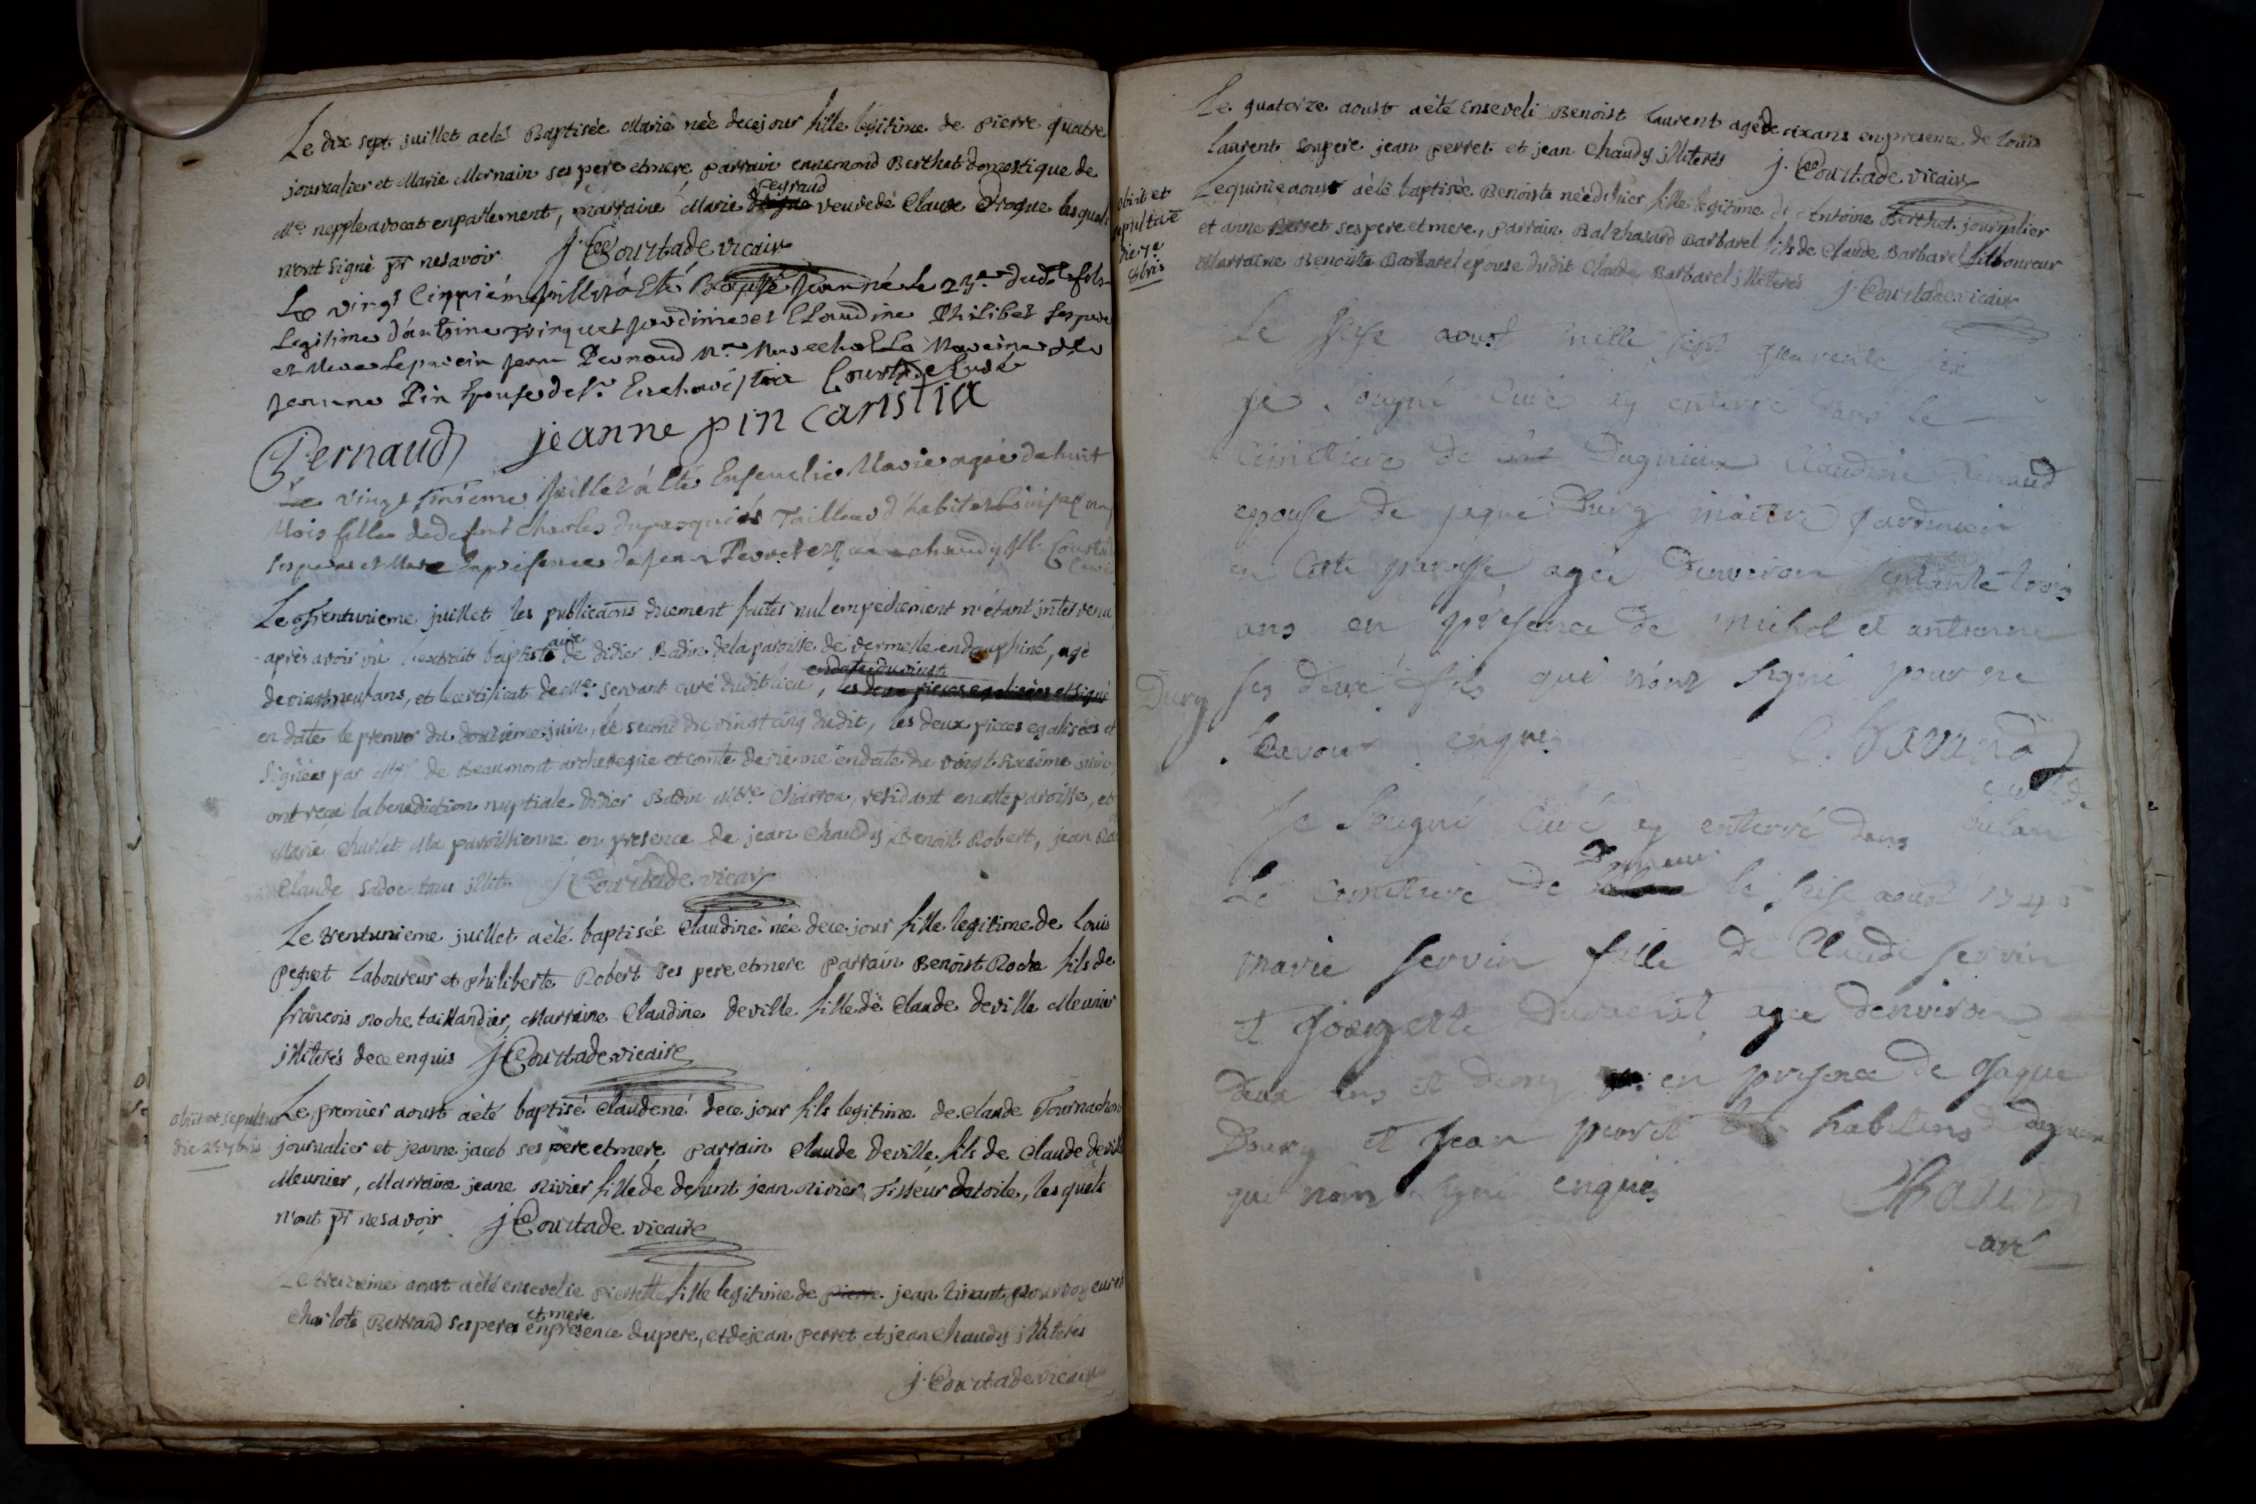 Le dix sept juillet aeté Baptisée Marie née decejour fille legitime de pierre quatre
journalier et Marie Mornain ses pere etmere parrain ennemond Berthet domestique de
Mre nepple avocat enparlement, marraine Marie peyraud veuve de Claude Drogue lesquels
n'ont signé pr nesavoir J. Courtade vicaire
Le vingt Cinquiéme juillet à Eté Baptisé Jean né Le 23e dudt fils
Legitime d'antoine jardinier et Claudine Philibet ses pere
et Mere Le parein Jean Pernaud Me Marechal La Mareine dlle
Jeanne Pin Epouse de sr Courtade Curé
Pernaud jeanne pin caristia
Le vingt juillet à Eté Ensevelie Marie agée de huit
Mois fille de defunt Charles dupasquier Tailleur d'habits
ses peres et Mere En presence de Jean Perret et Jean chaudy ill. Courtade
Curé
Le Trenturieme juillet les publicaons duement faites nul empechement n'étant intervenu
après avoir vû l'extrait baptistaire de didier Badin dela paroisse de vermelle endauphiné, agé
de vingtneuf ans, et lecertificat de Mre servant curé dudit lieu,
en date le premier du douzieme juin, le second du vingt cinq dudit, les deux pieces egalisées et
signées par Mgr de Beaumont archeveque et comte de vienne endate du vingt sixieme juin
ont reçu la benediction nuptiale didier Badin Mtre Charron, residant encette paroisse, et
Marie Charlet Ma paroissienne en presence de jean Chaudy Benoist Robert, jean
Claude Sadoc tous illit. J Courtade vicaire
Le trenturieme juillet aeté baptisée Claudine née dece jour fille legitime de Louis
pequet Laboureur et philiberte Robert ses pere etmere parrain Benoist Roche fils de
françois Roche taillandier, Marraine Claudine deville fille de Claude deville Meunier
illiterés dece enquis J Courtade vicaire
obiit et sepultus
die 23 7bris
Le premier aoust aeté baptisé Claude né dece jour fils legitime de Claude Tournachon
journalier et jeanne jacob ses pere etmere parrain Claude deville fils de Claude deville
Meunier, Marraine jeane Rivier fille de defunt jean Rivier Tisseur de toile, les quels
n'ont pr nesavoir J Courtade vicaire
Le treizieme aoust aeté ensevelie pierrette fille legitime de pierre jean Tirant pourvoyeur et
Charlote Bertrand ses peres et mere enpresence dupere, etdejean perret et jean Chaudy illiterés
J. Courtade vicaire
Le quatorze aoust aeté Enseveli Benoist Laurent agé de dixans enpresence de Louis
Laurent sonpere jean perret et jean Chaudy illiterés J. Courtade vicaire
obiit et
sepulta e
die 7e
8bris
Lequinze aoust aeté baptisée Benoiste née d'hier fille legitime de Antoine Berthet journalier
et anne Perret sespere etmere, parrain Balthasard Barbarel fils de Claude Barbarel Laboureur
Marraine Benoiste Barbarel épouse dudit Claude Barbarel illiterés J. Courtade vicaire
Le seise aoust mille sept quarente six
je sougné Curé ay enterre dans le
Cimetiere de Dagnieux Claudine Renaud
epouse de jaque Durg maitre jardinier
en Cette paroisse agée d'environ sentante trois
ans en présence de michel et antoinne
Durg
ses deux fils qui n'ont signé pour ne
scavoir enquis
Je sougné Curé ay enterré dans
Le Cimetiere de Dagnieux le seise aoust 1746
marie servin fille de Claude servin
et Jorgette agée denviron
deux ans et demy en presence de Jaque
Dourg et Jean perret habitans de dagnieux
qui nont signé enquis
curé